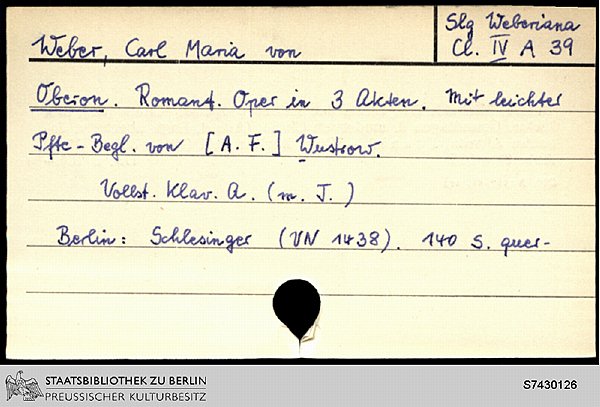 Weber, Carl Maria von
Slg Weberiana
Cl. IV A 39
Oberon. Romant. Oper in 3 Akten. Mit leichter
Pfte-Begl. von [A. F.] Wustrow.
Vollst. Klav. A. (m. T.)
Berlin: Schlesinger (VN 1438). 140 S. quer-
STAATSBIBLIOTHEK ZU BERLIN
PREUSSISCHER KULTURBESITZ
S7430126